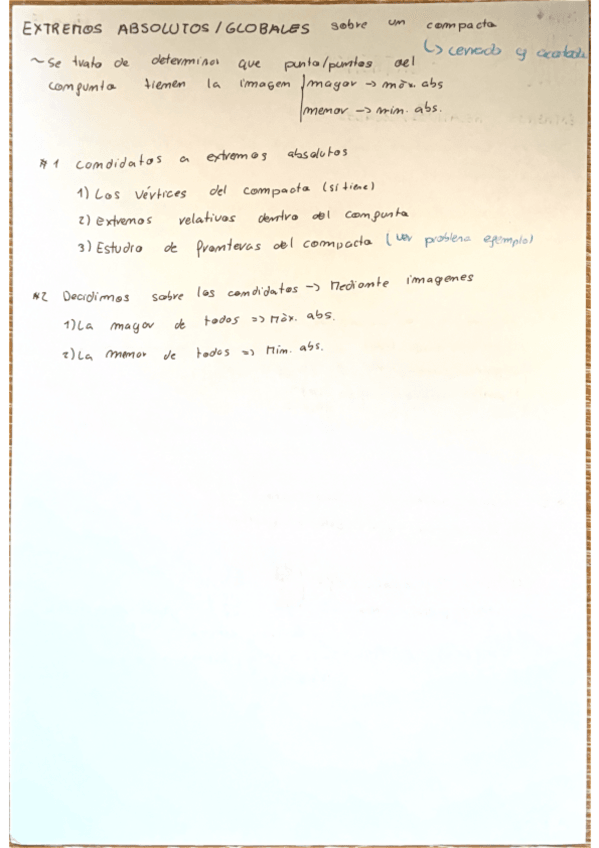 EXTREMOS ABSOLUTOS/GLOBALES sobre un compacto
↳ cerrado y acotado
~ Se trata de determinar que punto/puntos del
conjunto tienen la imagen | mayor → máx. abs
| menor → mín. abs.
#1 Candidatos a extremos absolutos
1) Los vértices del compacto (si tiene)
2) extremos relativos dentro del conjunto
3) Estudio de fronteras del compacto (ver problema ejemplo)
#2 Decidimos sobre los candidatos → Mediante imagenes
1) La mayor de todos => Máx. abs.
2) La menor de todos => Mín. abs.